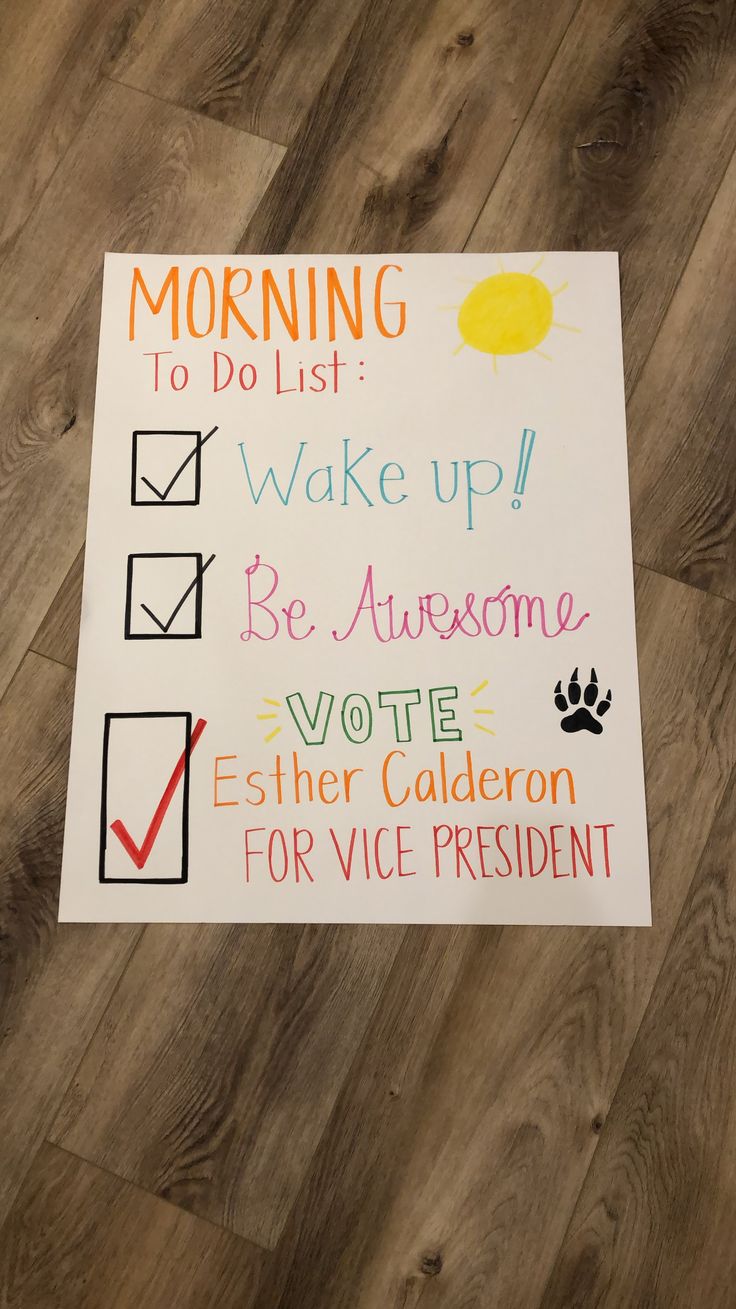 MORNING
To Do List:
Wake up!
Be Awesome
VOTE
Esther Calderon
FOR VICE PRESIDENT